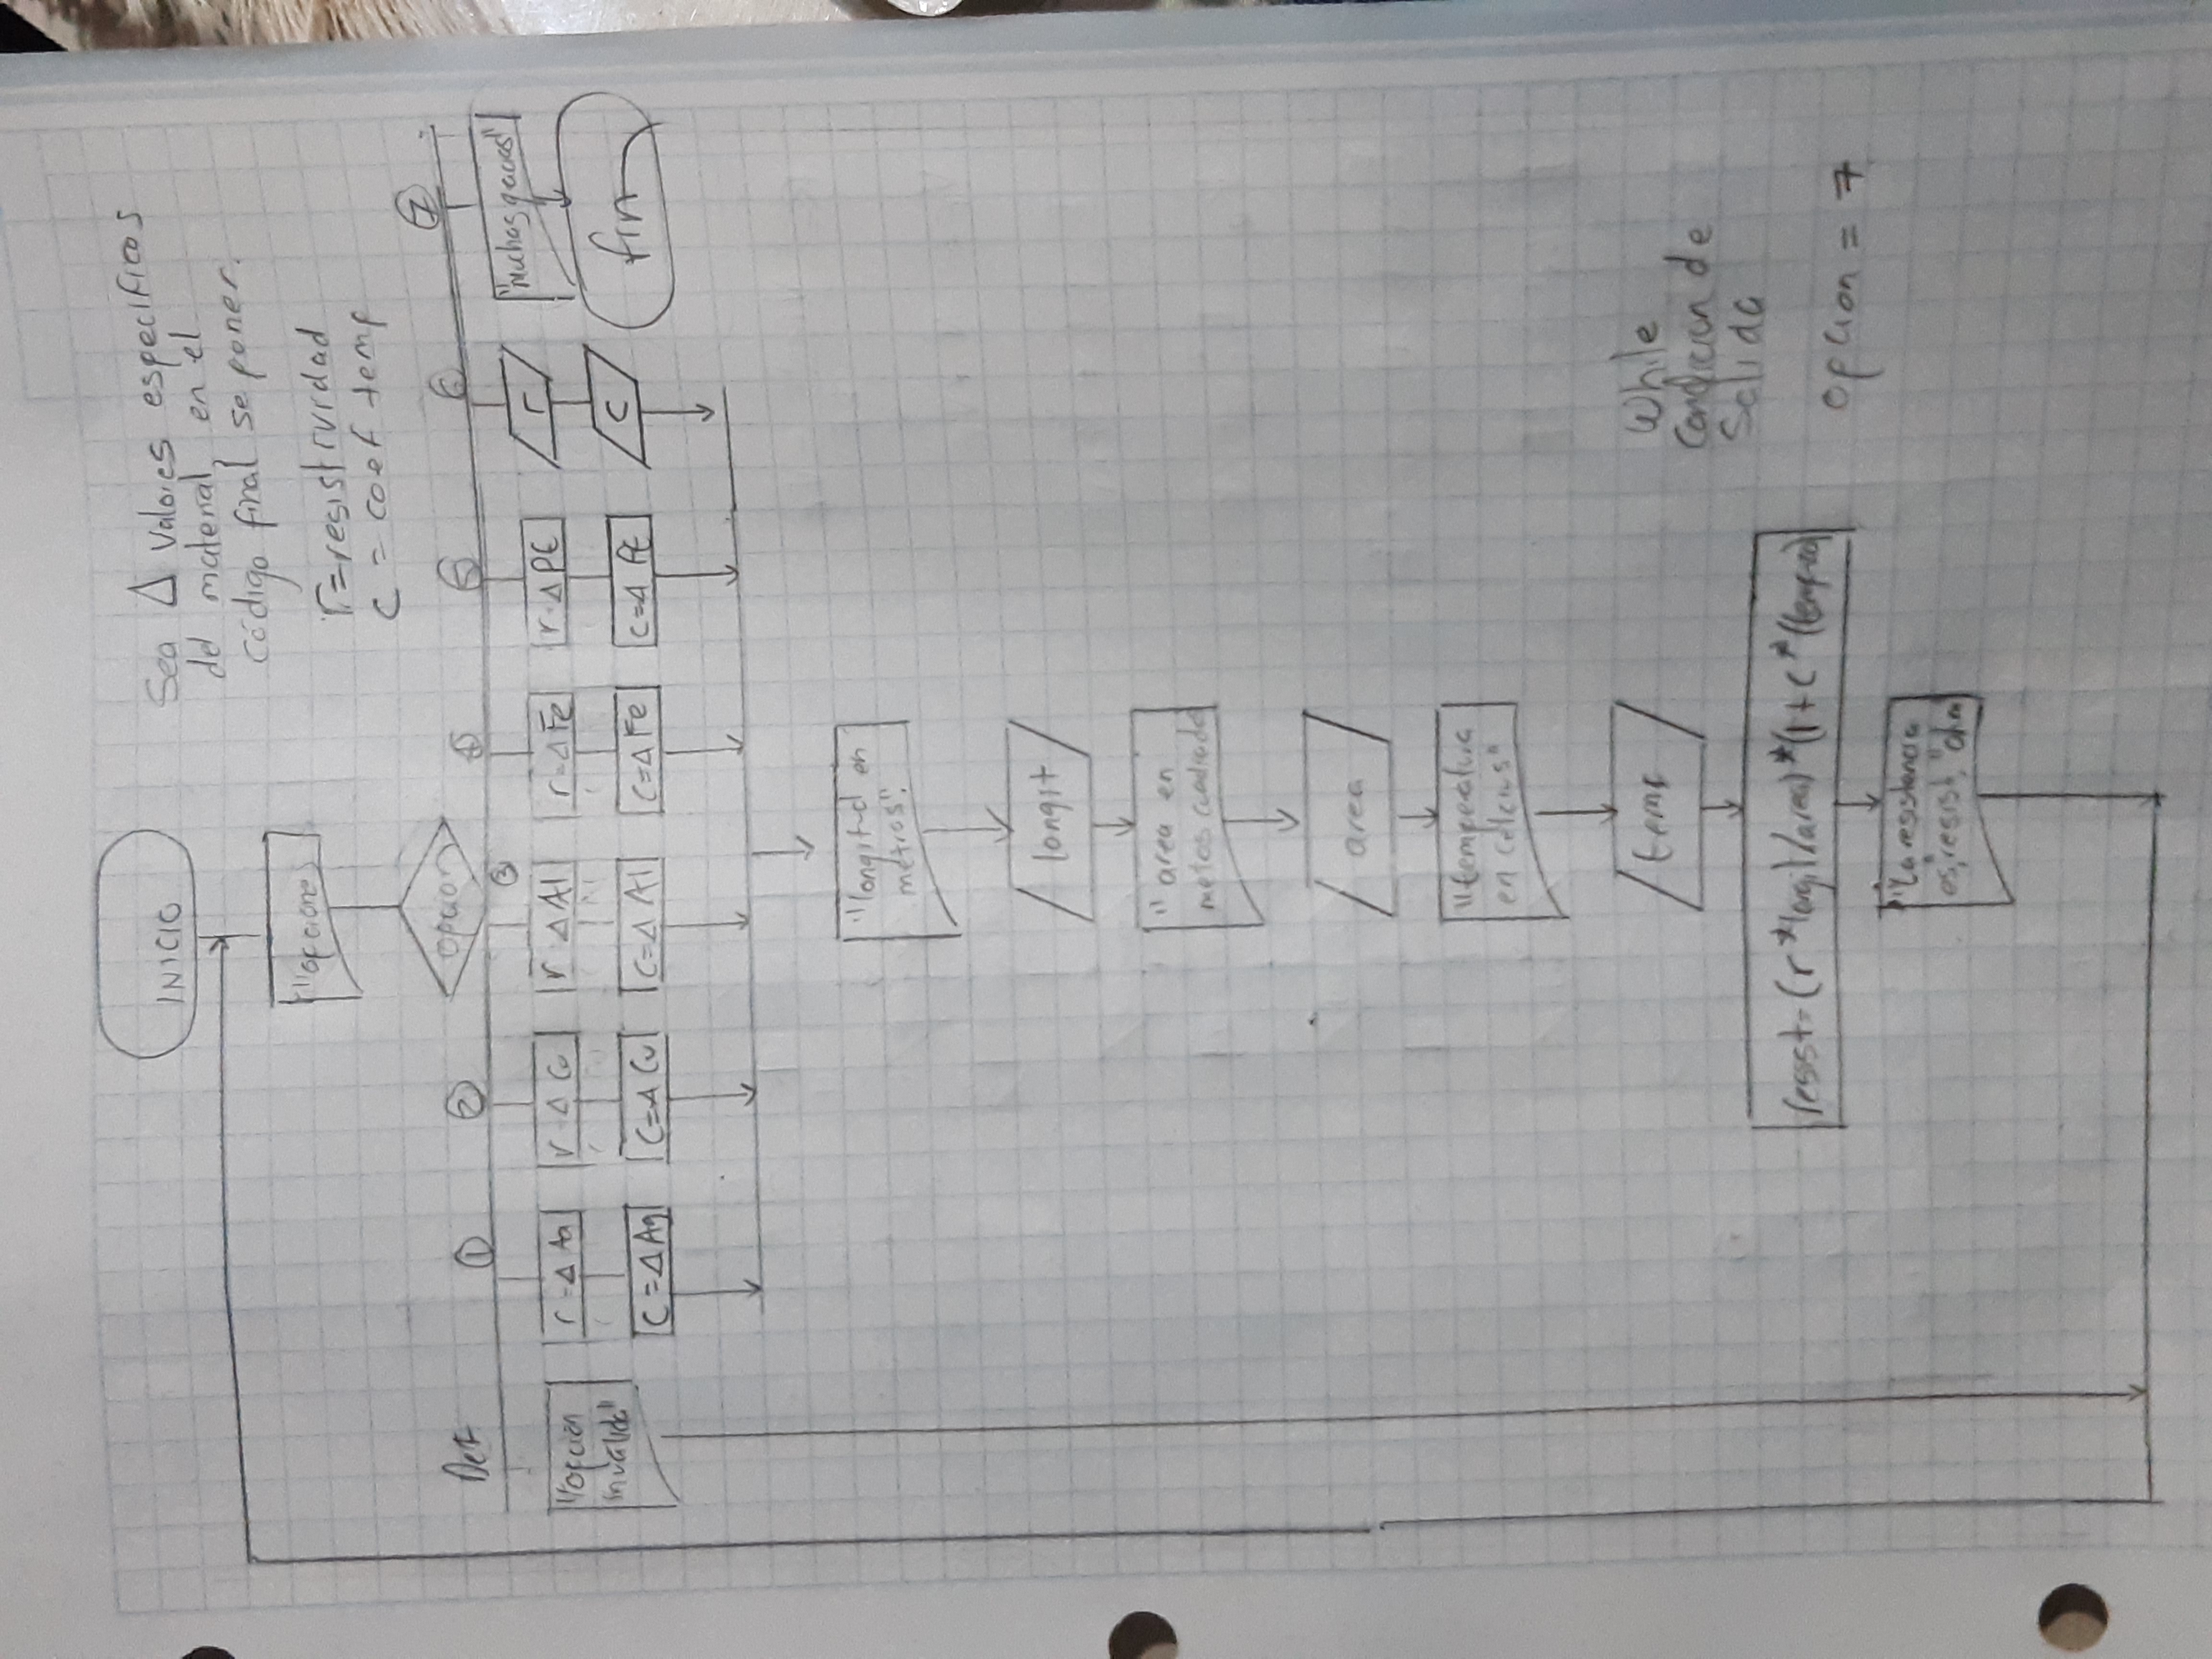 INICIO
Sea Δ valores especificos
del material, en el
código final se poner.
r=resistividad
c = coef temp
"opciones
opcion
Def
①
②
③
④
⑤
⑥
⑦
"opcion
invalida"
r=Δ Ag
r=Δ Cu
r=Δ Al
r=Δ Fe
r=Δ Pt
r
"Muchas gracias"
c=Δ Ag
c=Δ Cu
c=Δ Al
c=Δ Fe
c=Δ Pt
c
fin
"longitud en
metros".
longit
"area en
metos cuadrados
area
"temperatura
en celcius"
temp
resist=(r*longit/area)*(1+c*(temp-20)
"La resistencia
es,"resist,"ohm"
While
Condicion de
Salida
opcion = 7